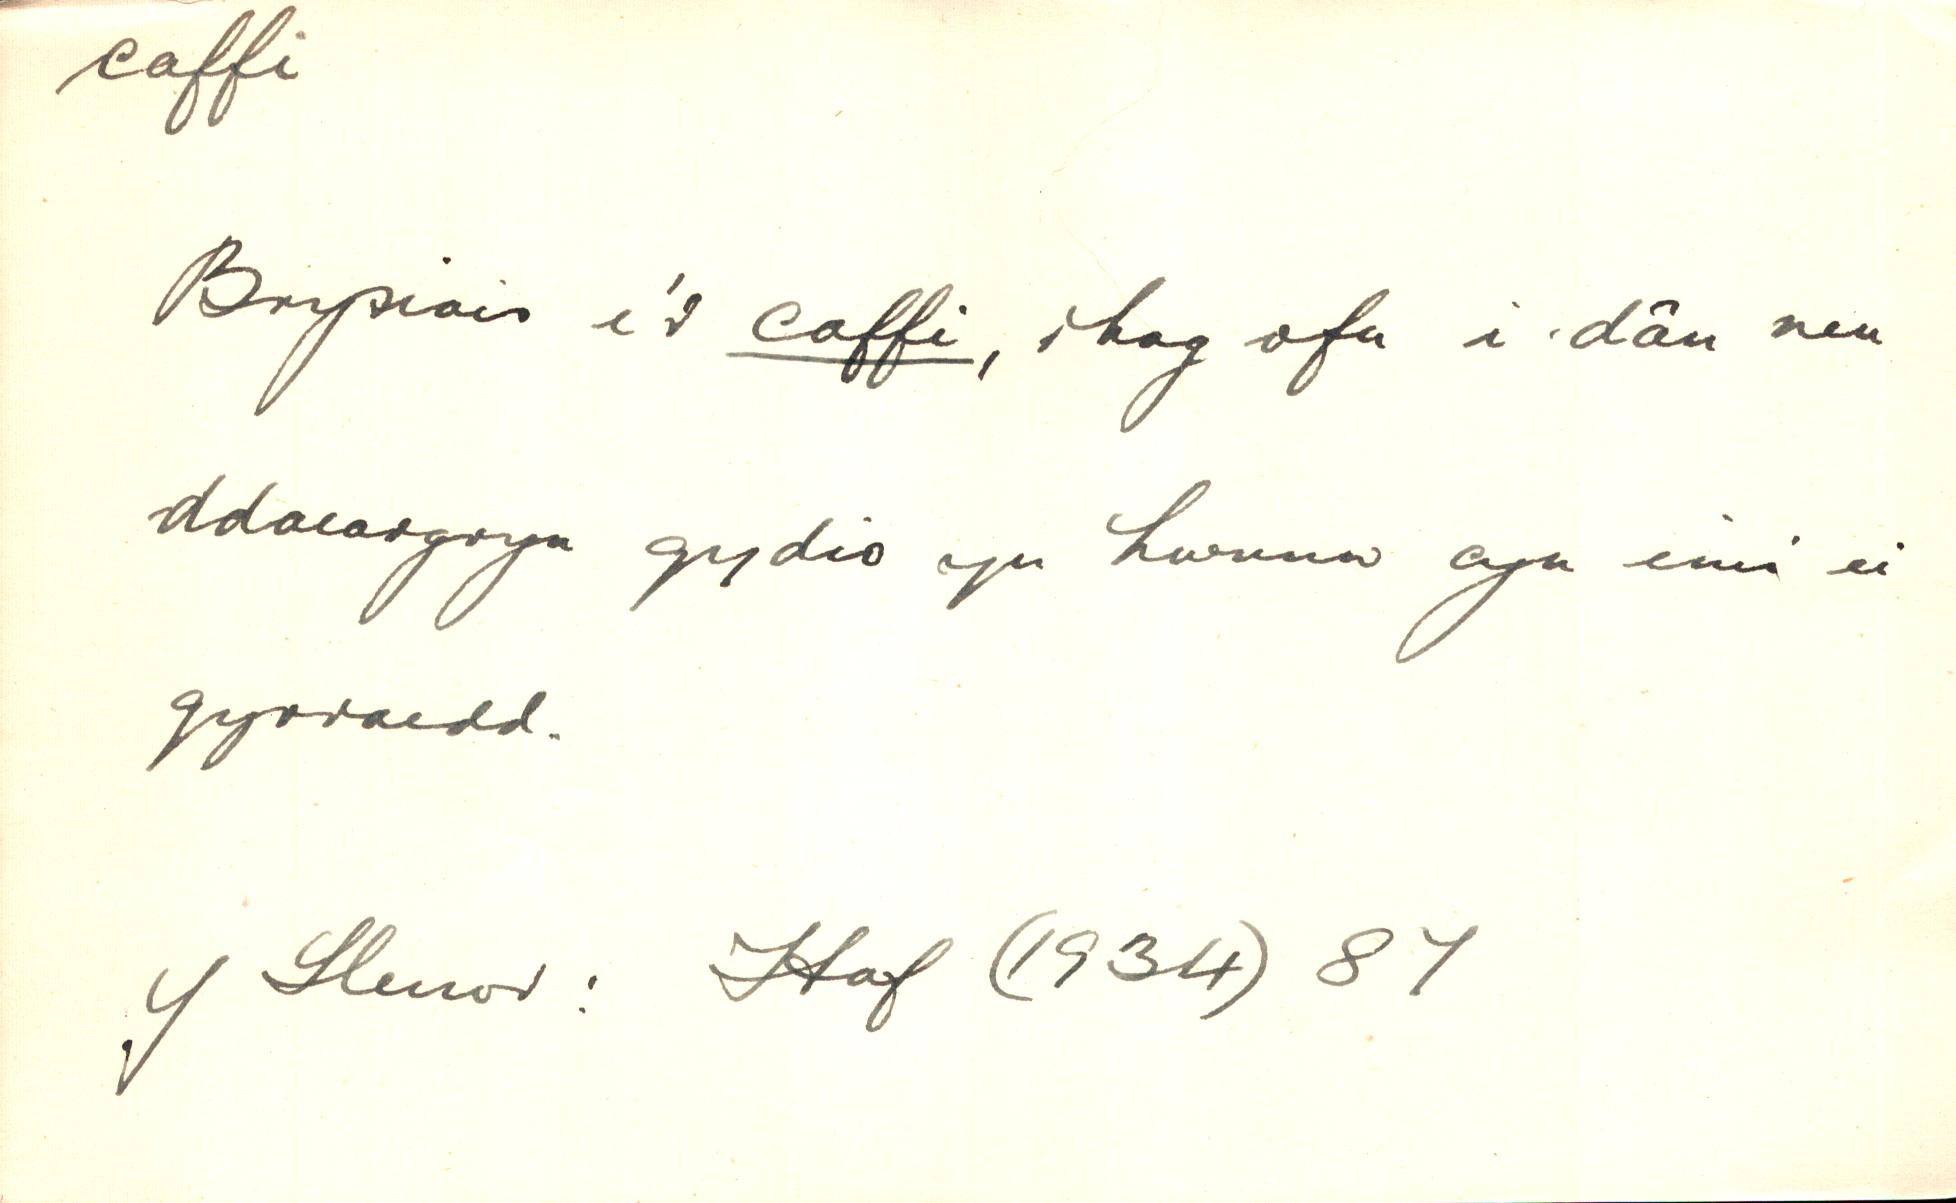 caffi
Brysiais i'r caffi, rhag ofn i dân neu
ddaeargryn gydio yn hwnnw cyn imi ei
gyrraedd.
Y Llenor: Haf (1934) 87